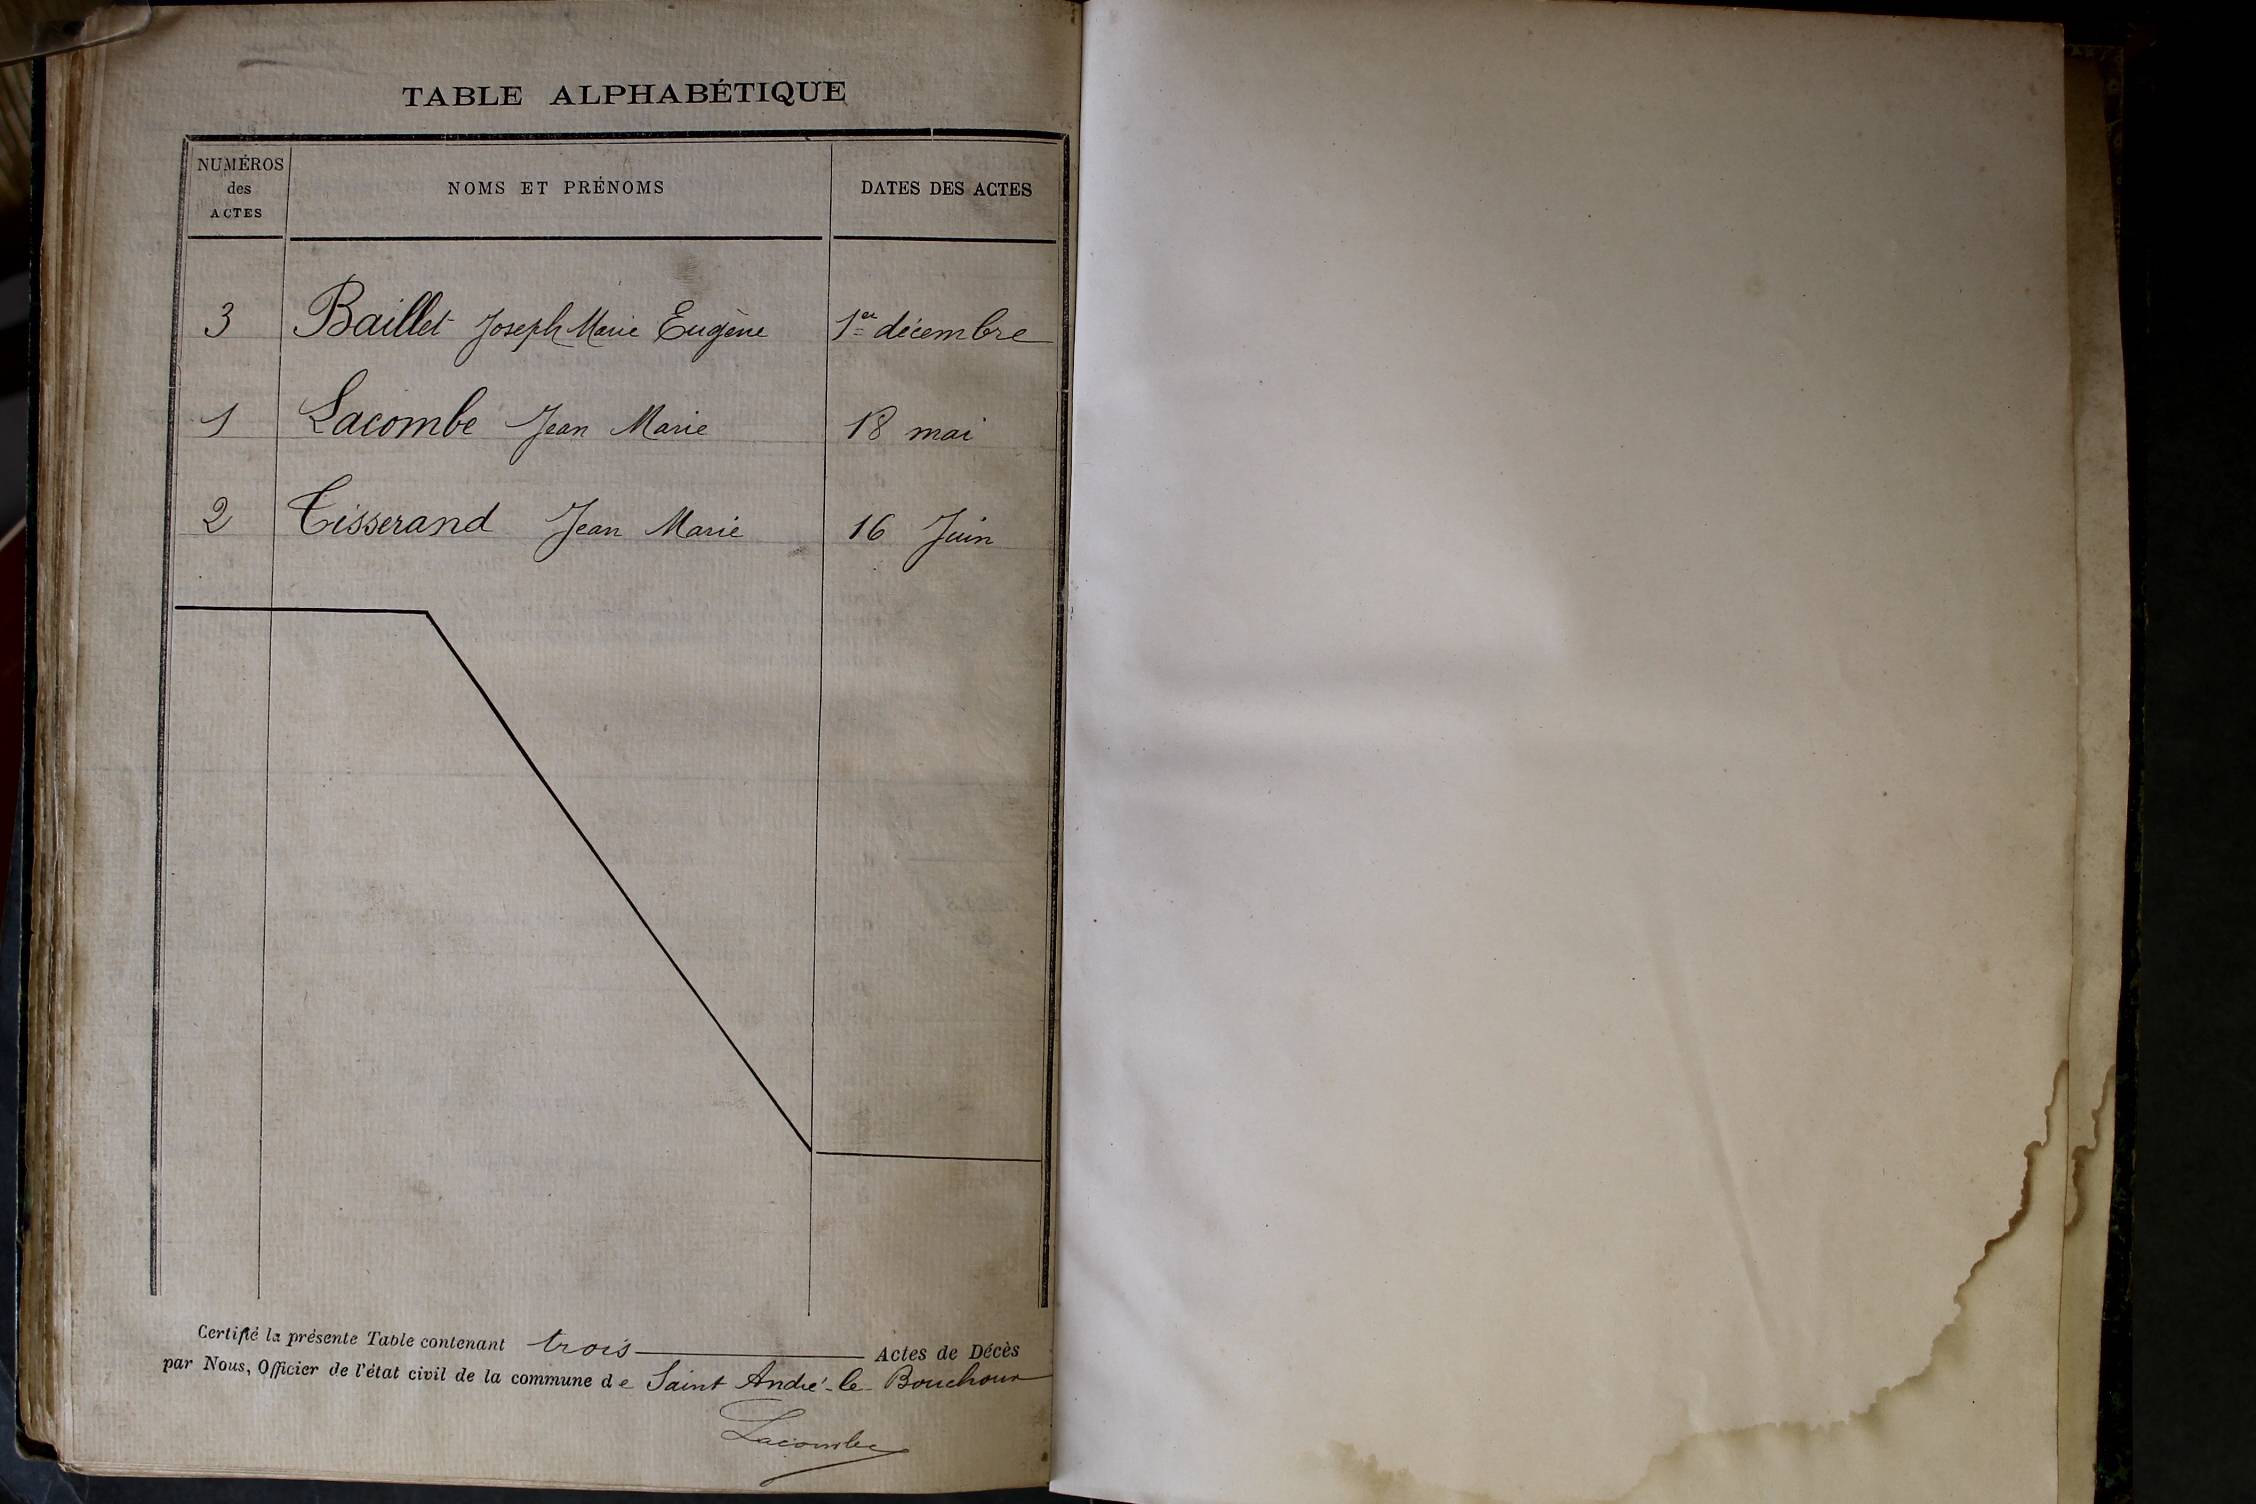 TABLE ALPHABÉTIQUE
NUMÉROS des ACTES
NOMS ET PRÉNOMS
DATES DES ACTES
3 Baillet Joseph Marie Eugène 1er décembre
1 Lacombe Jean Marie 18 mai
2 Tisserand Jean Marie 16 Juin
Certifié la présente Table contenant trois Actes de Décès
par Nous, Officier de l'état civil de la commune de Saint André-le-Bouchoux
Lacombe